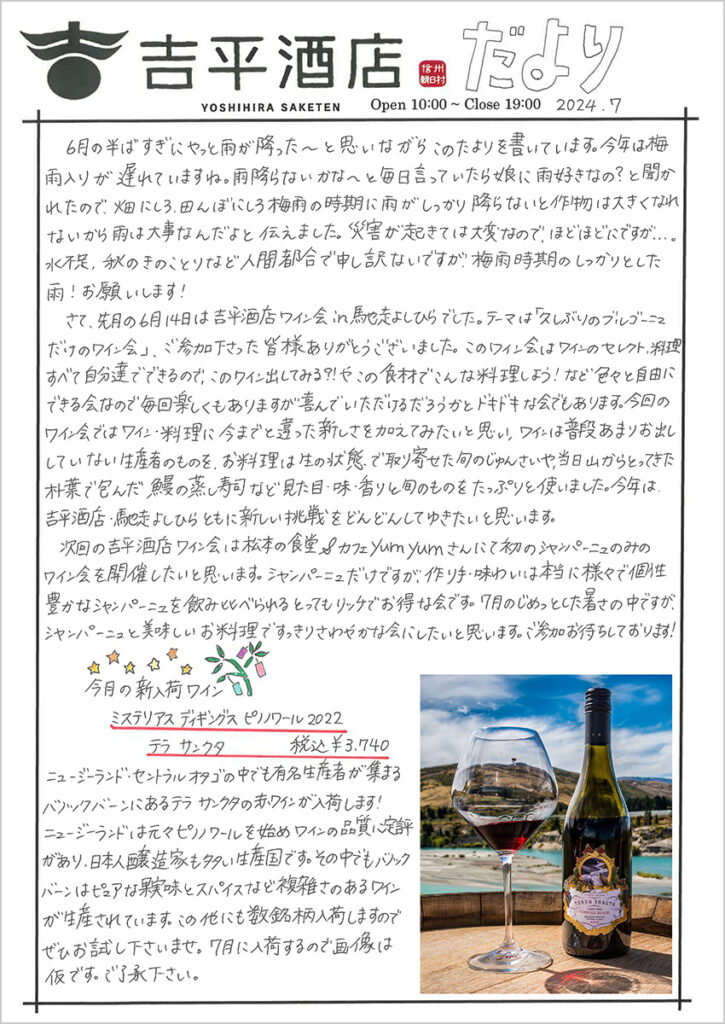 吉平酒店 信州朝日村 だより
YOSHIHIRA SAKETEN Open 10:00 ~ Close 19:00 2024.7
6月の半ばすぎにやっと雨が降った〜と思いながらこのたよりを書いています。今年は梅
雨入りが遅れていますね。雨降らないかな〜と毎日言っていたら娘に雨好きなの?と聞か
れたので、畑にしろ、田んぼにしろ梅雨の時期に雨がしっかり降らないと作物は大きくなれ
ないから雨は大事なんだよと伝えました。災害が起きては大変なので、ほどほどにですが…。
水不足、秋のきのことりなど人間都合で申し訳ないですが、梅雨時期のしっかりとした
雨!お願いします!
さて、先月の6月14日は吉平酒店ワイン会in馳走よしひらでした。テーマは「久しぶりのブルゴーニュ
だけのワイン会」、ご参加下さった皆様ありがとうございました。このワイン会はワインのセレクト、料理
すべて自分達でできるので、このワイン出してみる?!やこの食材でこんな料理しよう!など色々と自由に
できる会なので毎回楽しくもありますが喜んでいただけるだろうかとドキドキな会でもあります。今回の
ワイン会ではワイン・料理に今までと違った新しさを加えてみたいと思い、ワインは普段あまりお出し
していない生産者のものを、お料理は生の状態で取り寄せた旬のじゅんさいや、当日山からとってきた
朴葉で包んだ鰻の蒸し寿司など見た目・味・香りと旬のものをたっぷりと使いました。今年は、
吉平酒店・馳走よしひらともに新しい挑戦をどんどんしてゆきたいと思います。
次回の吉平酒店ワイン会は松本の食堂&カフェyum yumさんにて初のシャンパーニュのみの
ワイン会を開催したいと思います。シャンパーニュだけですが、作り手・味わいは本当に様々で個性
豊かなシャンパーニュを飲み比べられるとってもリッチでお得な会です。7月のじめっとした暑さの中ですが、
シャンパーニュと美味しいお料理ですっきりさわやかな会にしたいと思います。ご参加お待ちしております!
今月の新入荷ワイン
ミステリアス ディギングス ピノノワール 2022
テラ サンクタ 税込¥3.740
ニュージーランド・セントラル オタゴの中でも有名生産者が集まる
バノックバーンにあるテラ サンクタの赤ワインが入荷します!
ニュージーランドは元々ピノノワールを始めワインの品質に定評
があり、日本人醸造家も多い生産国です。その中でもバノック
バーンはピュアな果実味とスパイスなど複雑さのあるワイン
が生産されています。この他にも数銘柄入荷しますので
ぜひお試し下さいませ。7月に入荷するので画像は
仮です。ご了承下さい。
TERRA SANCTA